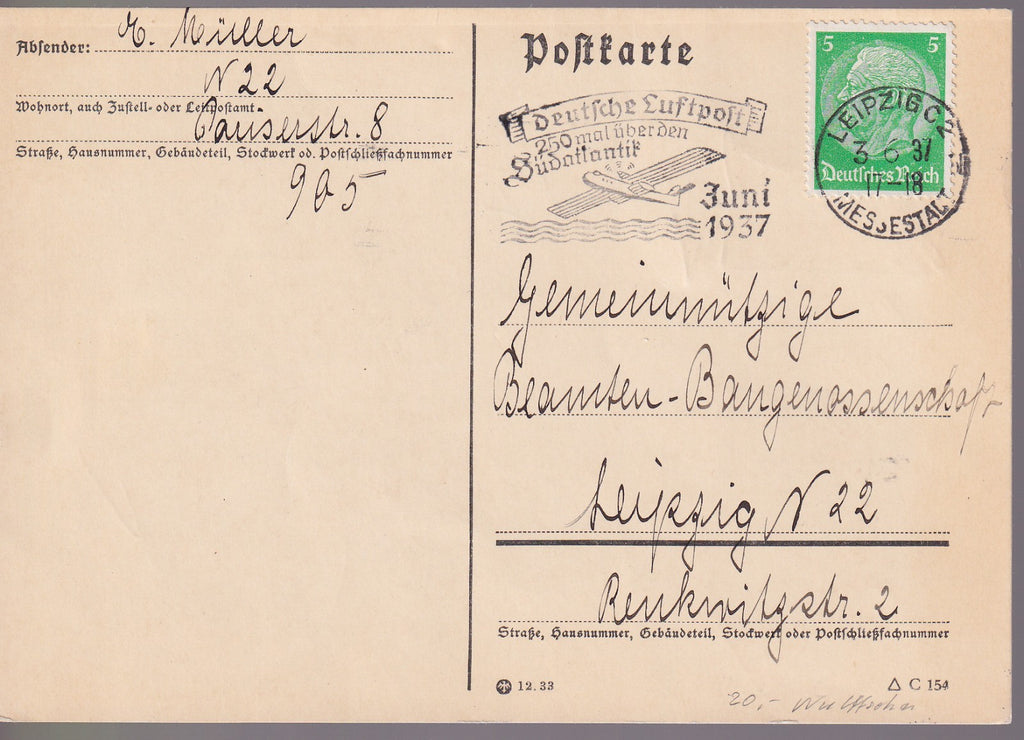 Absender: A. Müller
N 22
Wohnort, auch Zustell- oder Leitpostamt
Pauserstr. 8
Straße, Hausnummer, Gebäudeteil, Stockwerk od. Postschließfachnummer
905
Postkarte
Deutsche Luftpost
250 mal über den
Südatlantik
Juni
1937
5 5
Deutsches Reich
LEIPZIG C2
3 6 37
17-18
MESSESTADT
Gemeinnützige
Beamten-Baugenossenschaft
Leipzig N 22
Renkwitzstr. 2
Straße, Hausnummer, Gebäudeteil, Stockwerk oder Postschließfachnummer
12.33
△ C 154
20,-